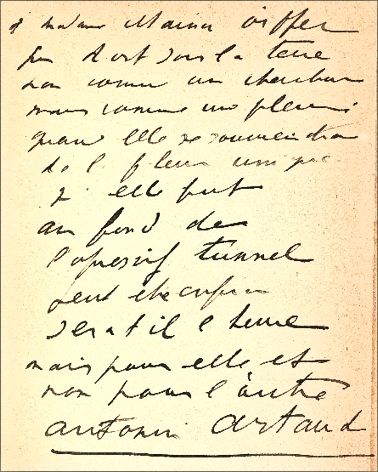 à madame Maina
dort sous la terre
non comme un chercheur
mais comme une fleur
quand elle se souviendra
de l fleur une
qu elle fut
au fond de
l'opressif tunnel
peut être enfin
sera t il l heure
mais pour elle et
non pour l'autre
antonin artaud